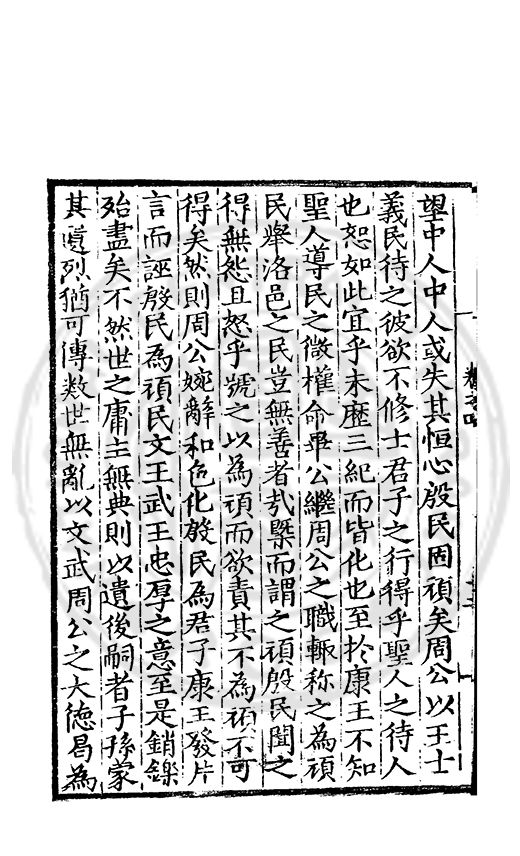 望中人中人或失其恒心殷民固頑矣周公以王士
義民待之彼欲不修士君子之行得乎聖人之待人
也恕如此宜乎未歷三紀而皆化也至於康王不知
聖人導民之微權命畢公繼周公之職輙称之為頑
民舉洛邑之民豈無善者㢤槩而謂之頑殷民聞之
得無怨且怒乎號之以為頑而欲責其不為頑不可
得矣然則周公婉辭和色化殷民為君子康王發片
言而誣殷民為頑民文王武王忠厚之意至是銷鑠
殆盡矣不然世之庸主無典則以遺後嗣者子孫蒙
其遺烈猶可傳数世無亂以文武周公之大徳曷為